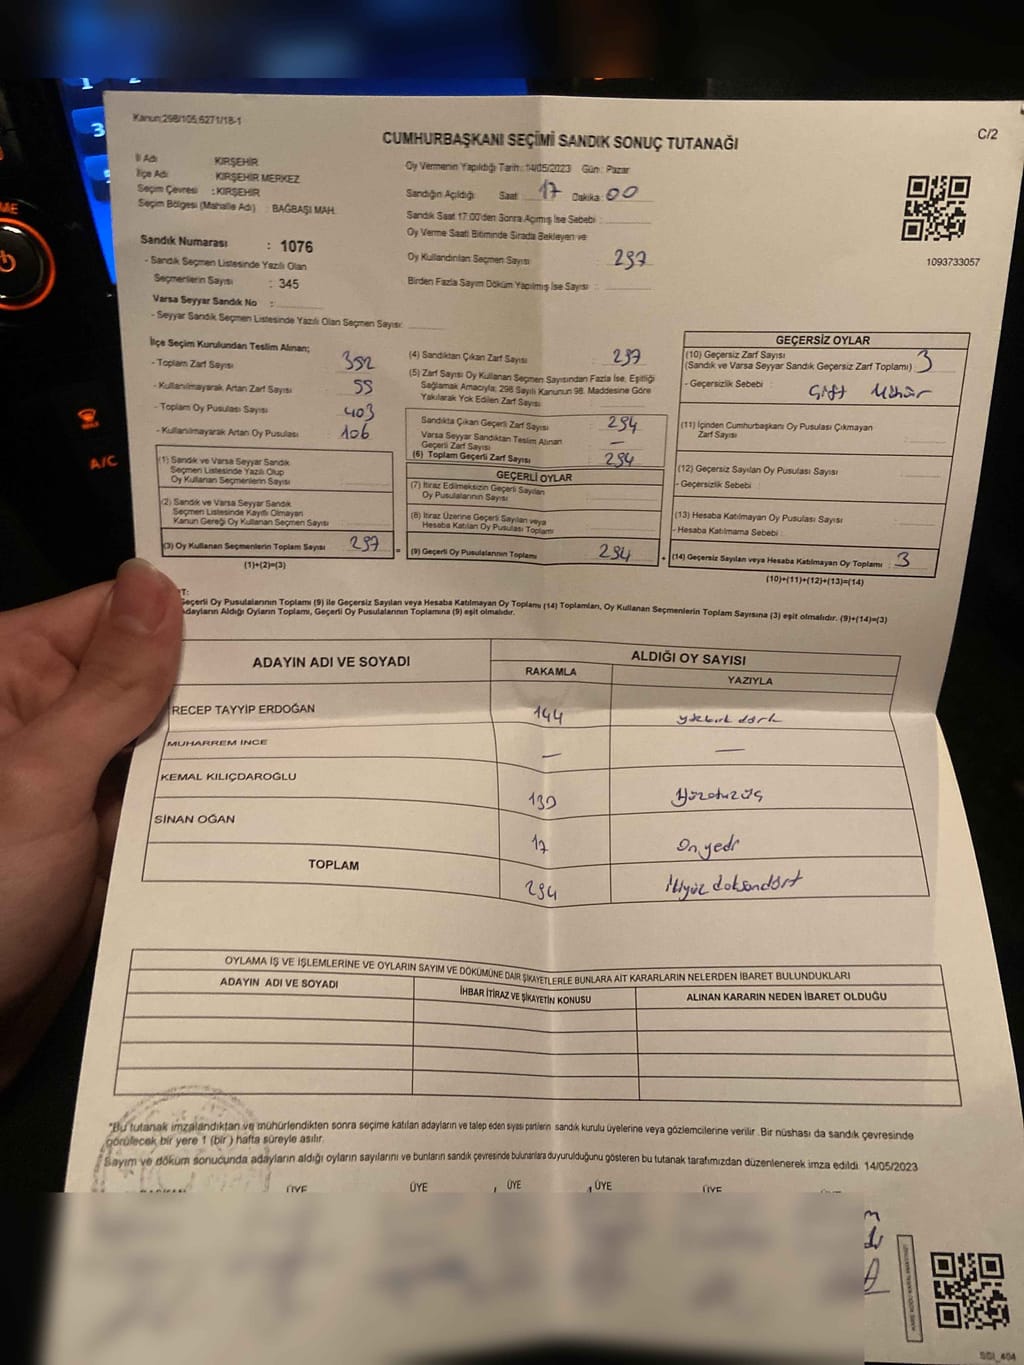 Kanun;298/105;6271/18-1
C/2
CUMHURBAŞKANI SEÇİMİ SANDIK SONUÇ TUTANAĞI
İl Adı KIRŞEHİR
İlçe Adı KIRŞEHİR MERKEZ
Seçim Çevresi : KIRŞEHİR
Seçim Bölgesi (Mahalle Adı) : BAĞBAŞI MAH.
Sandık Numarası : 1076
- Sandık Seçmen Listesinde Yazılı Olan
Seçmenlerin Sayısı : 345
Varsa Seyyar Sandık No :
- Seyyar Sandık Seçmen Listesinde Yazılı Olan Seçmen Sayısı:
Oy Vermenin Yapıldığı Tarih: 14/05/2023 Gün : Pazar
Sandığın Açıldığı Saat 17 Dakika : 00
Sandık Saat 17:00'den Sonra Açılmış İse Sebebi :
Oy Verme Saati Bitiminde Sırada Bekleyen ve
Oy Kullandırılan Seçmen Sayısı 297
Birden Fazla Sayım Döküm Yapılmış İse Sayısı :
1093733057
İlçe Seçim Kurulundan Teslim Alınan;
- Toplam Zarf Sayısı 352
- Kullanılmayarak Artan Zarf Sayısı 55
- Toplam Oy Pusulası Sayısı 403
- Kullanılmayarak Artan Oy Pusulası 106
(1) Sandık ve Varsa Seyyar Sandık
Seçmen Listesinde Yazılı Olup
Oy Kullanan Seçmenlerin Sayısı
(2) Sandık ve Varsa Seyyar Sandık
Seçmen Listesinde Kayıtlı Olmayan
Kanun Gereği Oy Kullanan Seçmen Sayısı
(3) Oy Kullanan Seçmenlerin Toplam Sayısı 297
(1)+(2)=(3)
(4) Sandıktan Çıkan Zarf Sayısı : 297
(5) Zarf Sayısı Oy Kullanan Seçmen Sayısından Fazla İse, Eşitliği
Sağlamak Amacıyla; 298 Sayılı Kanunun 98. Maddesine Göre
Yakılarak Yok Edilen Zarf Sayısı
Sandıkta Çıkan Geçerli Zarf Sayısı : 294
Varsa Seyyar Sandıktan Teslim Alınan
Geçerli Zarf Sayısı : —
(6) Toplam Geçerli Zarf Sayısı : 294
GEÇERLİ OYLAR
(7) İtiraz Edilmeksizin Geçerli Sayılan
Oy Pusulalarının Sayısı
(8) İtiraz Üzerine Geçerli Sayılan veya
Hesaba Katılan Oy Pusulası Toplamı
= (9) Geçerli Oy Pusulalarının Toplamı 294
GEÇERSİZ OYLAR
(10) Geçersiz Zarf Sayısı
(Sandık ve Varsa Seyyar Sandık Geçersiz Zarf Toplamı) 3
- Geçersizlik Sebebi : Çift Mühür
(11) İçinden Cumhurbaşkanı Oy Pusulası Çıkmayan
Zarf Sayısı
(12) Geçersiz Sayılan Oy Pusulası Sayısı
- Geçersizlik Sebebi :
(13) Hesaba Katılmayan Oy Pusulası Sayısı
- Hesaba Katılmama Sebebi :
+ (14) Geçersiz Sayılan veya Hesaba Katılmayan Oy Toplamı : 3
(10)+(11)+(12)+(13)=(14)
T:
Geçerli Oy Pusulalarının Toplamı (9) ile Geçersiz Sayılan veya Hesaba Katılmayan Oy Toplamı (14) Toplamları, Oy Kullanan Seçmenlerin Toplam Sayısına (3) eşit olmalıdır. (9)+(14)=(3)
Adayların Aldığı Oyların Toplamı, Geçerli Oy Pusulalarının Toplamına (9) eşit olmalıdır.
ADAYIN ADI VE SOYADI ALDIĞI OY SAYISI
RAKAMLA YAZIYLA
RECEP TAYYİP ERDOĞAN 144
MUHARREM İNCE — —
KEMAL KILIÇDAROĞLU
SİNAN OĞAN 17 On yedi
TOPLAM 294 İkiyüz doksandört
OYLAMA İŞ VE İŞLEMLERİNE VE OYLARIN SAYIM VE DÖKÜMÜNE DAİR ŞİKAYETLERLE BUNLARA AİT KARARLARIN NELERDEN İBARET BULUNDUKLARI
ADAYIN ADI VE SOYADI İHBAR İTİRAZ VE ŞİKAYETİN KONUSU ALINAN KARARIN NEDEN İBARET OLDUĞU
*Bu tutanak imzalandıktan ve mühürlendikten sonra seçime katılan adayların ve talep eden siyasi partilerin sandık kurulu üyelerine veya gözlemcilerine verilir .Bir nüshası da sandık çevresinde
görülecek bir yere 1 (bir ) hafta süreyle asılır.
Sayım ve döküm sonucunda adayların aldığı oyların sayılarını ve bunların sandık çevresinde bulunanlara duyurulduğunu gösteren bu tutanak tarafımızdan düzenlenerek imza edildi. 14/05/2023
ÜYE ÜYE ÜYE ÜYE ÜYE
3
A/C